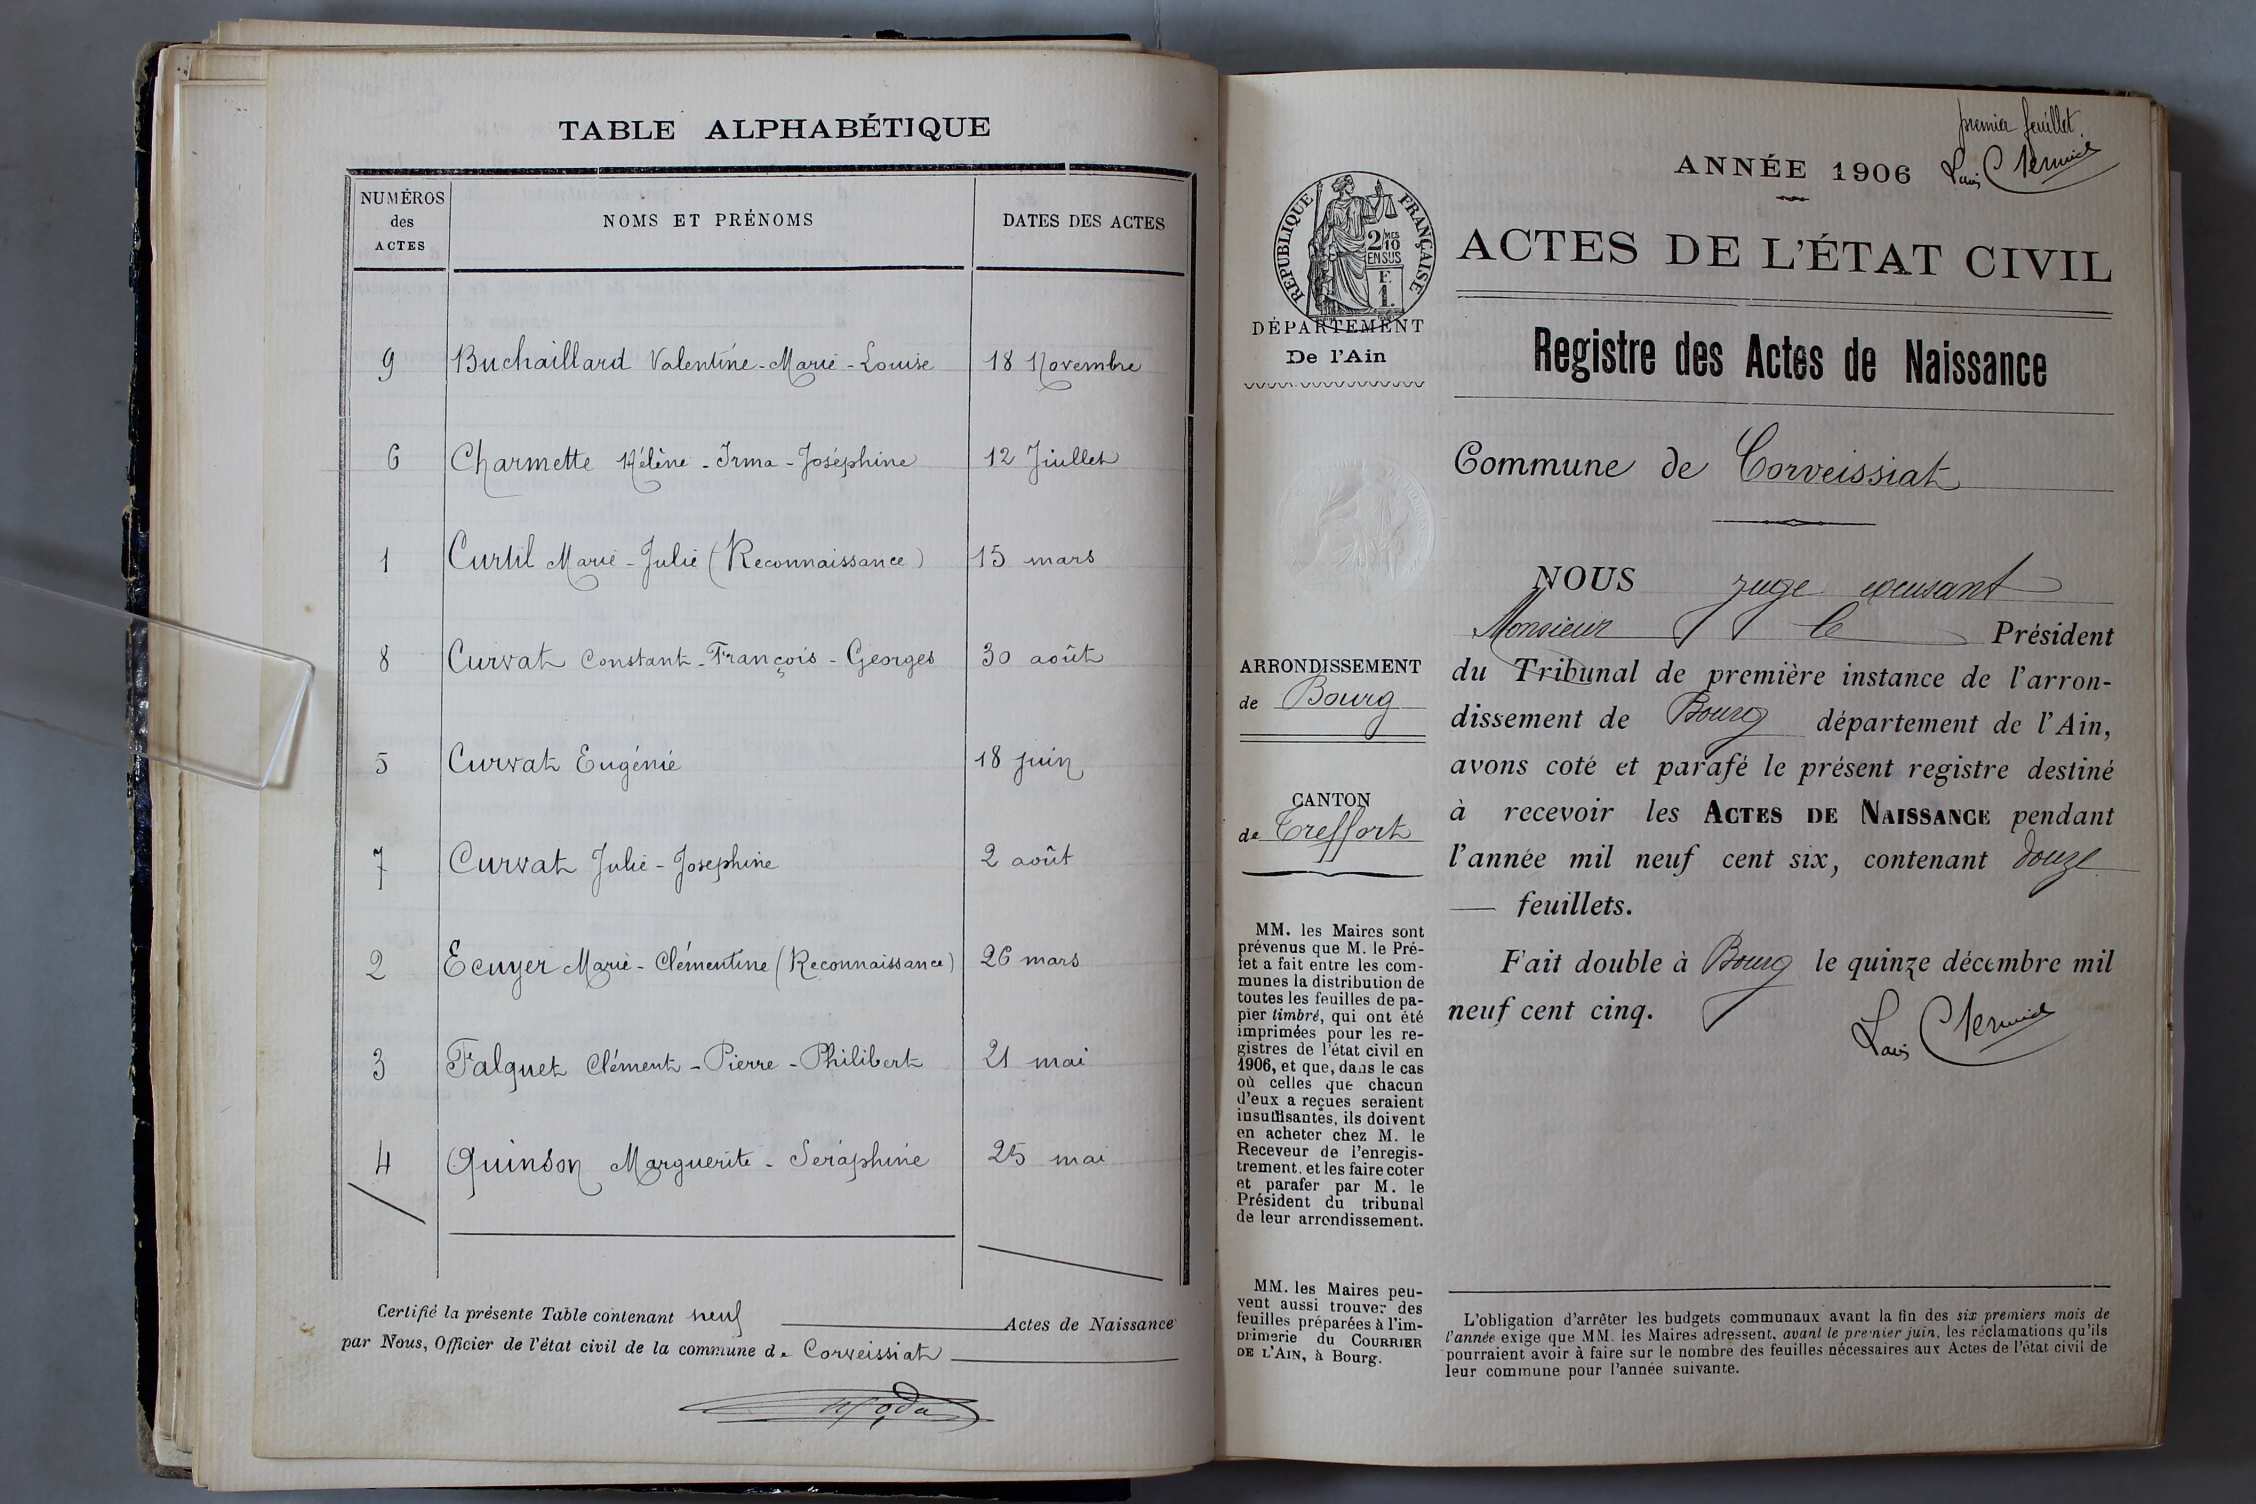 TABLE ALPHABÉTIQUE
NUMÉROS des ACTES
NOMS ET PRÉNOMS
DATES DES ACTES
9 Buchaillard Valentine-Marie-Louise 18 Novembre
6 Charmette Hélène-Irma-Joséphine 12 Juillet
1 Curtil Marie-Julie (Reconnaissance) 15 mars
8 Curvat Constant-François-Georges 30 août
5 Curvat Eugénie 18 juin
7 Curvat Julie-Josephine 2 août
2 Ecuyer Marie-Clémentine (Reconnaissance) 26 mars
3 Falquet Clément-Pierre-Philibert 21 mai
4 Quinson Marguerite-Seráphine 25 mai
Certifié la présente Table contenant neuf Actes de Naissance
par Nous, Officier de l'état civil de la commune de Corveissiat
premier feuillet.
ANNÉE 1906
RÉPUBLIQUE FRANÇAISE
2/10MES
EN SUS
F.
1.
ACTES DE L'ÉTAT CIVIL
DÉPARTEMENT
De l'Ain
Registre des Actes de Naissance
Commune de Corveissiat
NOUS juge
Monsieur le Président
du Tribunal de première instance de l'arron-
dissement de Bourg département de l'Ain,
avons coté et parafé le présent registre destiné
à recevoir les ACTES DE NAISSANCE pendant
l'année mil neuf cent six, contenant douze
— feuillets.
Fait double à Bourg le quinze décembre mil
neuf cent cinq.
ARRONDISSEMENT
de Bourg
CANTON
de Treffort
MM. les Maires sont
prévenus que M. le Pré-
fet a fait entre les com-
munes la distribution de
toutes les feuilles de pa-
pier timbré, qui ont été
imprimées pour les re-
gistres de l'état civil en
1906, et que, dans le cas
où celles que chacun
d'eux a reçues seraient
insuffisantes, ils doivent
en acheter chez M. le
Receveur de l'enregis-
trement, et les faire coter
et parafer par M. le
Président du tribunal
de leur arrondissement.
MM. les Maires peu-
vent aussi trouver des
feuilles préparées à l'im-
primerie du COURRIER
DE L'AIN, à Bourg.
L'obligation d'arrêter les budgets communaux avant la fin des six premiers mois de
l'année exige que MM. les Maires adressent, avant le premier juin, les réclamations qu'ils
pourraient avoir à faire sur le nombre des feuilles nécessaires aux Actes de l'état civil de
leur commune pour l'année suivante.